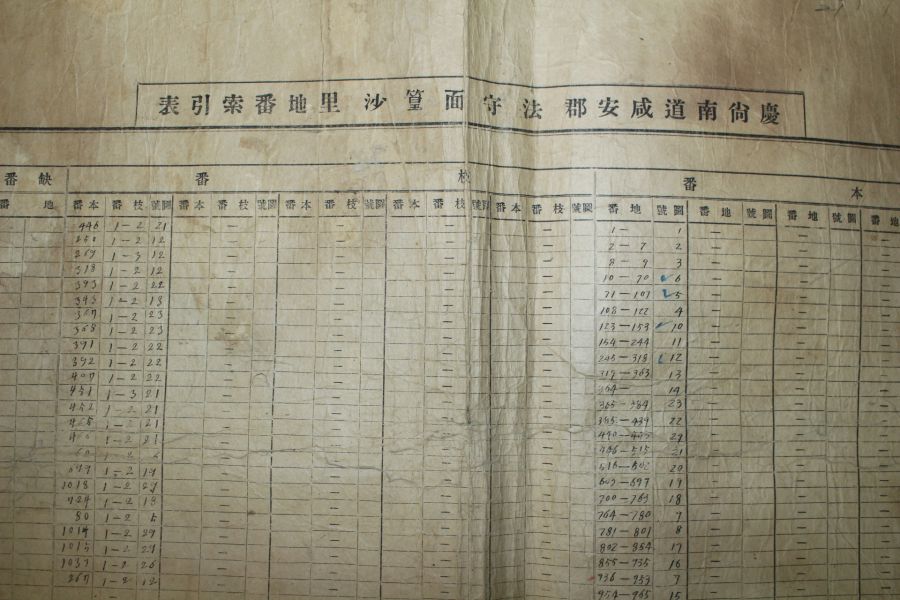 慶尙南道咸安郡法守面篁沙里地番索引表
本番
地番 圖號 地番 圖號 地番
1— 1
2—7 2
8—9 3
10—70 6
71—107 5
108—122 4
123—153 10
154—244 11
245—318 12
319—363 13
364— 14
365—384 23
385—439 22
21
20
603—697 19
700—763 18
764—780 7
781—801 8
802—854 17
855—935 16
936—953 7
954—965 15
枝番
本番 枝番 圖號 本番 枝番 圖號 本番 枝番 圖號 本番 枝番 圖號
446 1—2 21
1—2 12
269 1—3 12
318 1—2 12
393 1—2 22
1—2 13
367 1—2 23
368 1—2 23
391 1—2 22
392 1—2 22
407 1—2 22
451 1—3 21
452 1—2 21
1—2 21
1—2 21
1—2
699 1—2 19
1018 1—2 27
724 1—2 18
80 1—2 5
1014 1—2 27
1015 1—2 27
1037 1—2 26
267 1—2 12
缺番
地番